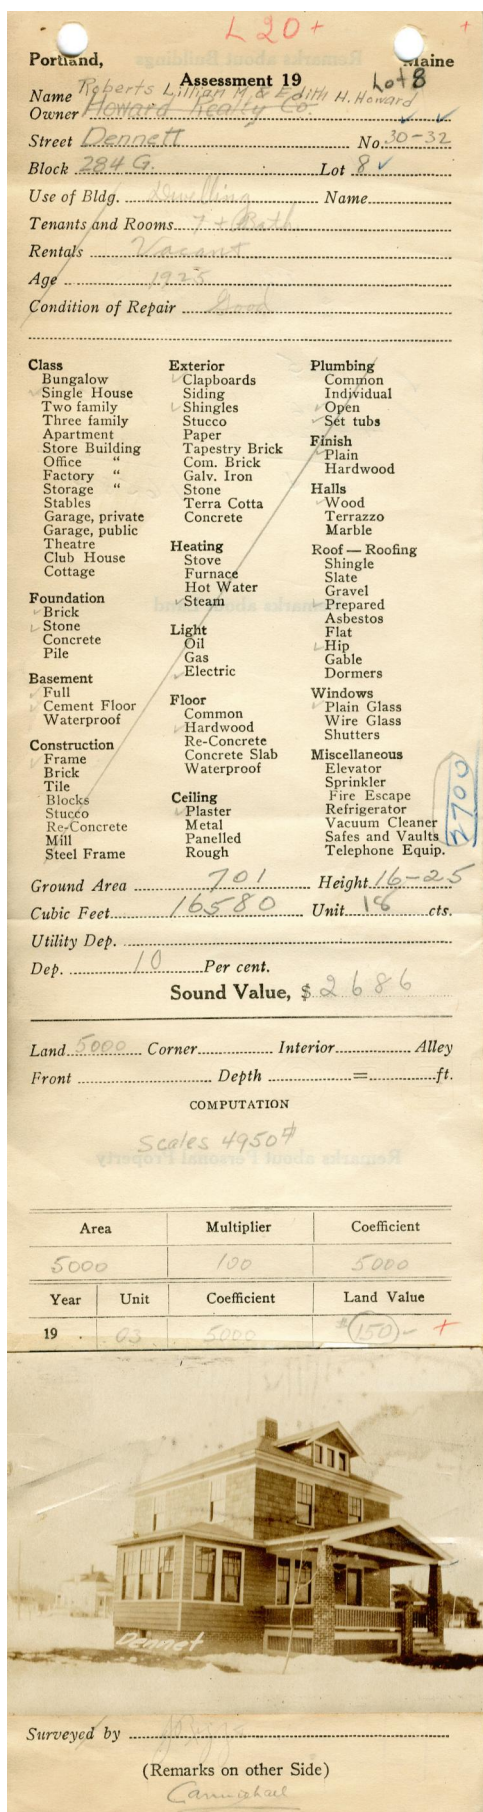 L 20 +
+
Portland, Maine
Assessment 19
Lot 8
Roberts Lillian M. & Edith H. Howard
Name
Owner Howard Realty Co.
Street Dennett No. 30-32
Block 284 G. Lot 8
Use of Bldg. Dwelling Name
Tenants and Rooms 7 + Bath
Rentals Vacant
Age 1925
Condition of Repair Good
Class
Bungalow
Single House
Two family
Three family
Apartment
Store Building
Office "
Factory "
Storage "
Stables
Garage, private
Garage, public
Theatre
Club House
Cottage
Foundation
Brick
Stone
Concrete
Pile
Basement
Full
Cement Floor
Waterproof
Construction
Frame
Brick
Tile
Blocks
Stucco
Re-Concrete
Mill
Steel Frame
Exterior
Clapboards
Siding
Shingles
Stucco
Paper
Tapestry Brick
Com. Brick
Galv. Iron
Stone
Terra Cotta
Concrete
Heating
Stove
Furnace
Hot Water
Steam
Light
Oil
Gas
Electric
Floor
Common
Hardwood
Re-Concrete
Concrete Slab
Waterproof
Ceiling
Plaster
Metal
Panelled
Rough
Plumbing
Common
Individual
Open
Set tubs
Finish
Plain
Hardwood
Halls
Wood
Terrazzo
Marble
Roof — Roofing
Shingle
Slate
Gravel
Prepared
Asbestos
Flat
Hip
Gable
Dormers
Windows
Plain Glass
Wire Glass
Shutters
Miscellaneous
Elevator
Sprinkler
Fire Escape
Refrigerator
Vacuum Cleaner
Safes and Vaults
Telephone Equip.
2700
Ground Area 701 Height 16-25
Cubic Feet 16580 Unit 18 cts.
Utility Dep.
Dep. 10 Per cent.
Sound Value, $ 2686
Land 5000 Corner Interior Alley
Front Depth = ft.
COMPUTATION
Scales 4950
Area Multiplier Coefficient
5000 100 5000
Year Unit Coefficient Land Value
19 .03 5000 $150- +
Dennet
Surveyed by
(Remarks on other Side)
Carmichael